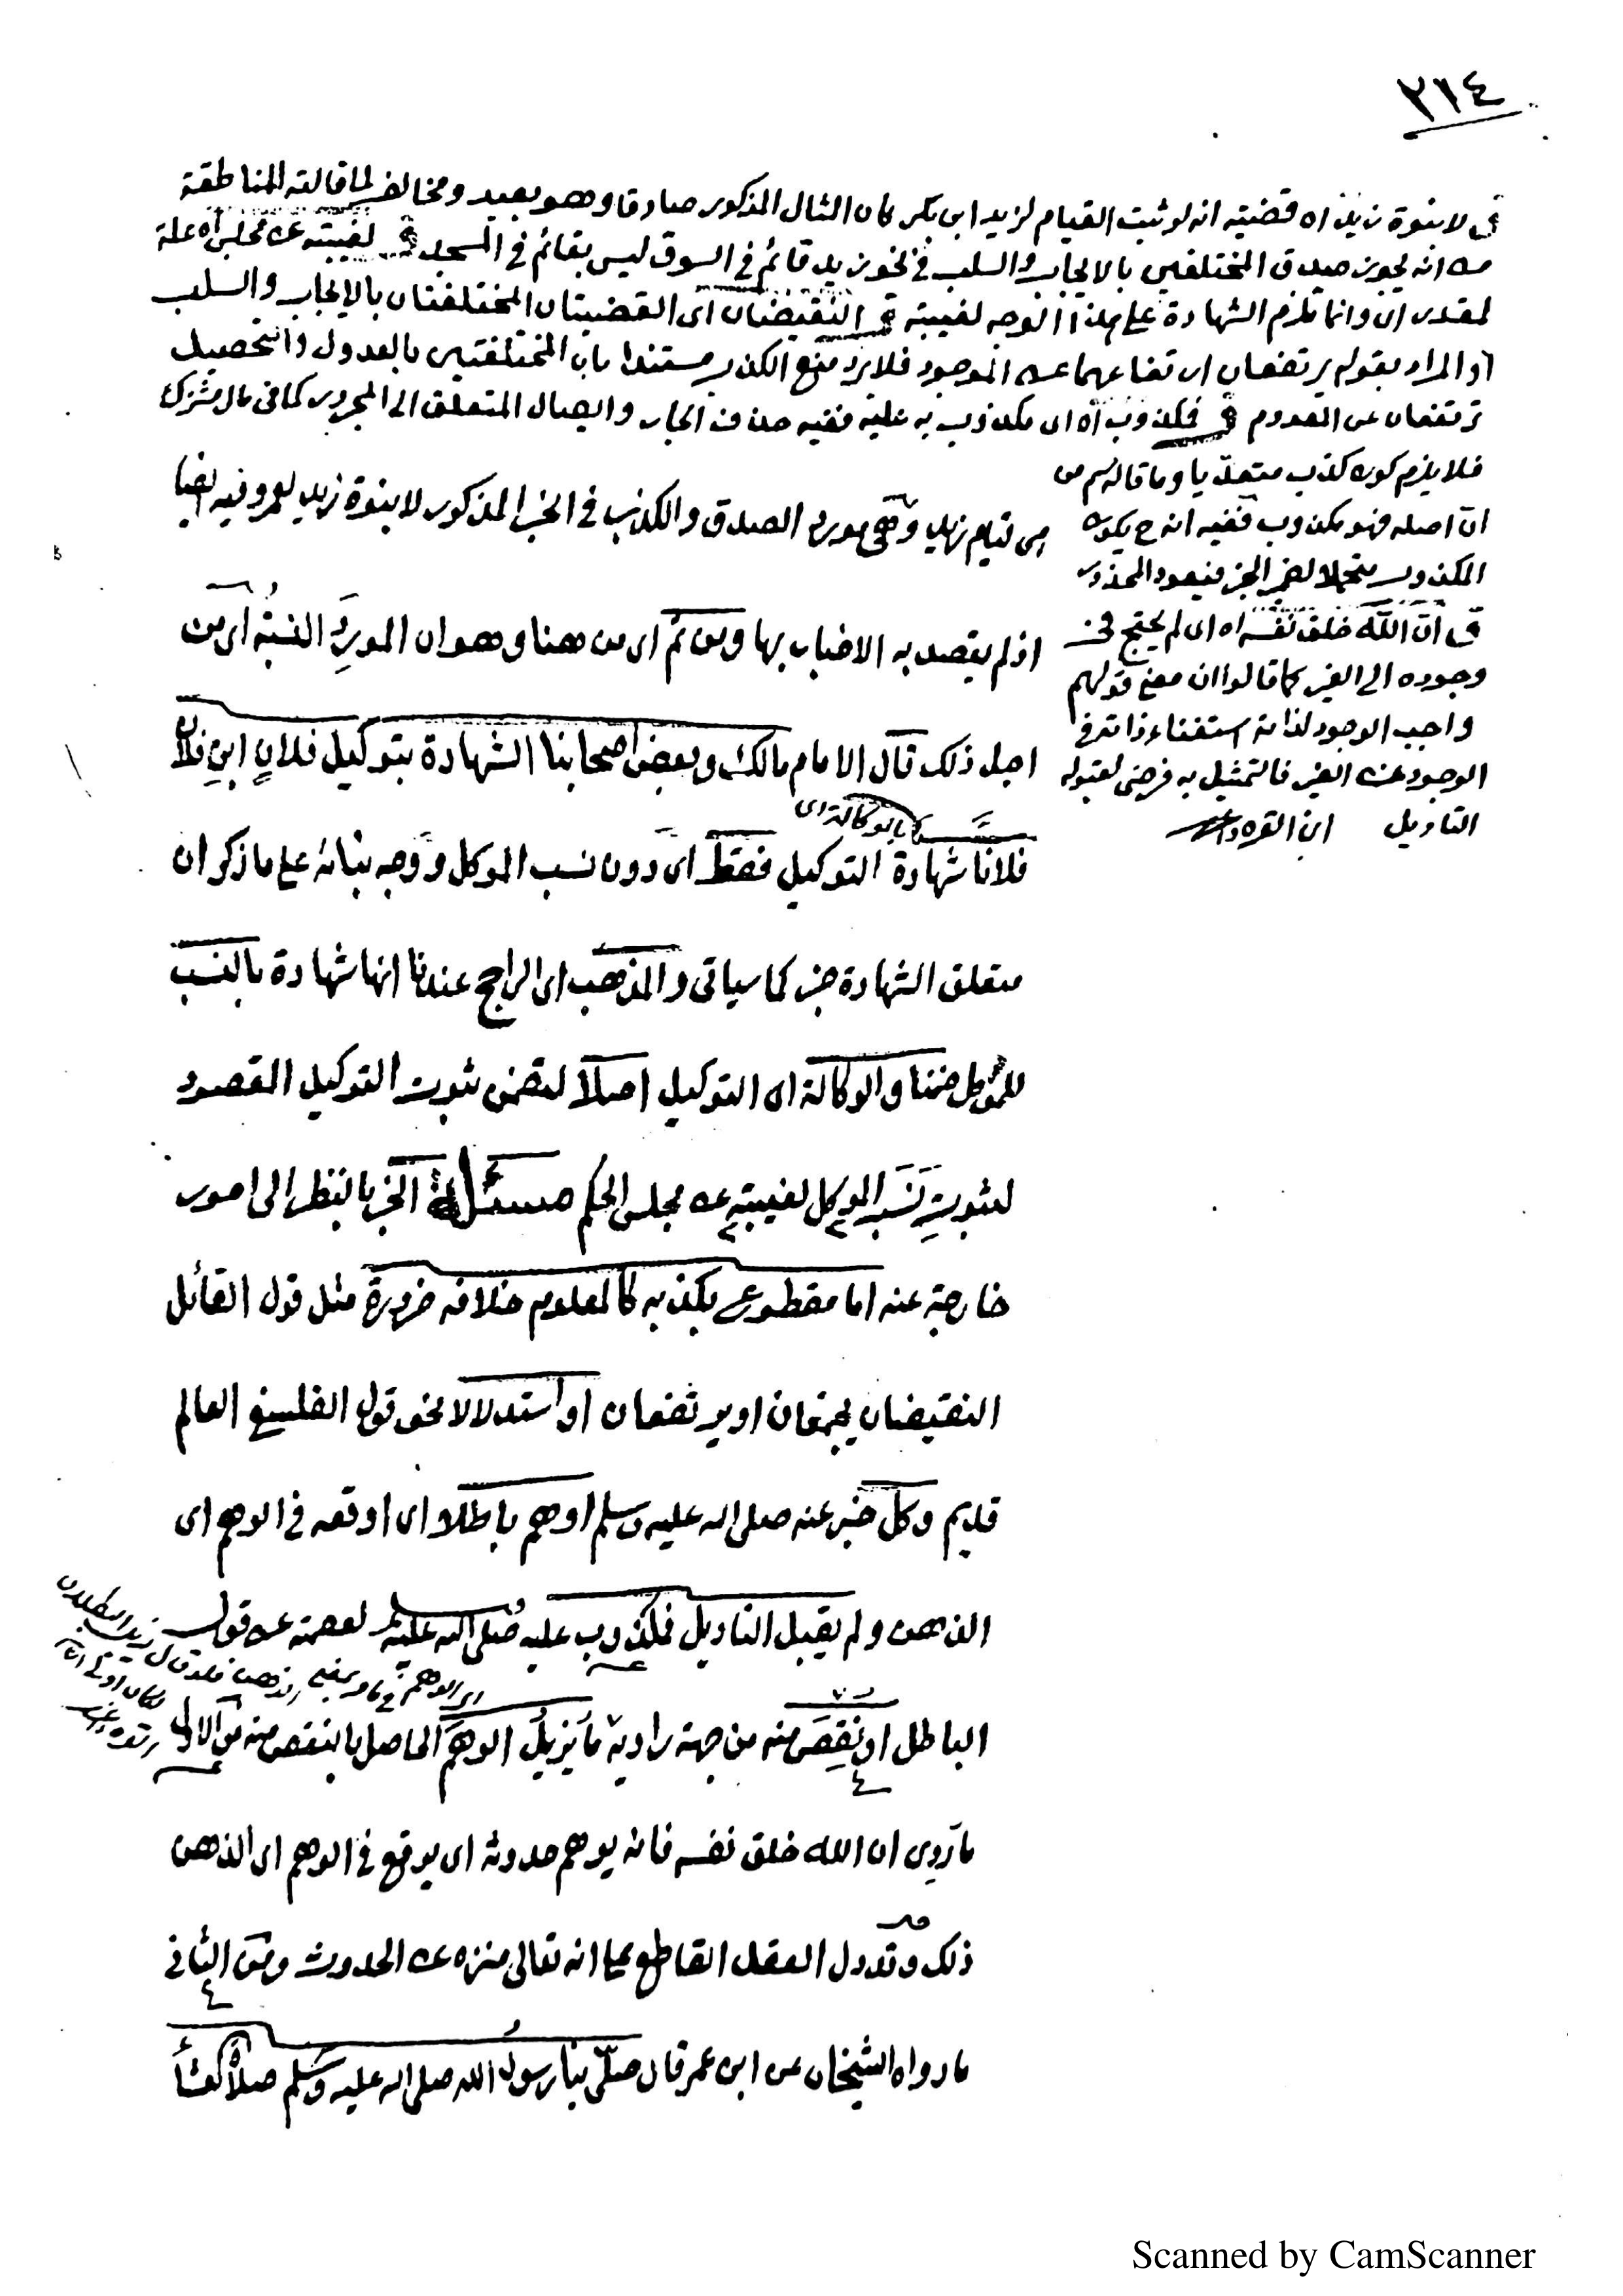 ٣١٤
لا بنوة زيد اه قضيته انه لو ثبت القيام لزيد ابن بكر كان المثال المذكور صادقا وهو بعيد ومخالف لما قالته المناطقة
من انه يجوز صدق المختلفين بالايجاب والسلب في نحو زيد قائم في السوق ليس بقائم في المسجد لغيبته عن مجلس اه علة
لمقدر اى وانما يلزم الشهادة على هذا الوجه لغيبته النقيضان اى القضيتان المختلفتان بالايجاب والسلب
اذ المراد بقوله يرتفعان ارتفاعهما عن الموجود فلا يرد منع الكذب مستندا بان المختلفتين بالعدول والتحصيل
ترتفعان عن المعدوم فمكذوب اه اى مكذوب به عليه ففيه حذف الجار وايصال المتعلق الى المجرور كما فى مال مشترك
فلا يلزم كون كذب متعديا وما قاله سم من
ان اصله فهو مكذوب ففيه انه ح يكون
المكذوب متحملا لضمير الخبر فيعود المحذور
ان الله خلق نفسه اه اى لم يحتج فى
وجوده الى الغير كما قالوا ان معنى قولهم
واجب الوجود لذاته استغناء ذاته فى
الوجود عن الغير فالتمثيل به فرضى لقبوله
التاويل ابن القره داغى
من قيام زيد وهى مورد الصدق والكذب فى الخبر المذكور لا بنوة زيد لعمرو فيه ايضا
اذ لم يقصد به الاخبار بها ومن ثم اى من هنا وهو ان المورد النسبة اى من
اجل ذلك قال الامام مالك وبعض اصحابنا الشهادة بتوكيل فلان ابن فلان
فلانا شهادة بالوكالة اى التوكيل فقط اى دون نسب الموكل ووجه بنائه على ما ذكر ان
متعلق الشهادة خبر كما سياتى والمذهب اى الراجح عندنا انها شهادة بالنسب
للموكل ضمنا والوكالة اى التوكيل اصلا لتضمن ثبوت التوكيل المقصود
لثبوت نسب الموكل لغيبته عن مجلس الحكم مسئلة الخبر بالنظر الى امور
خارجة عنه اما مقطوع بكذبه كالمعلوم خلافه ضرورة مثل قول القائل
النقيضان يجتمعان او يرتفعان او استدلالا نحو قول الفلسفى العالم
قديم وكل خبر عنه صلى الله عليه وسلم اوهم باطلا اى اوقعه فى الوهم اى
الذهن ولم يقبل التاويل فمكذوب عليه صلى الله عليه وسلم لعصمته عن قول
الباطل او نقص منه من جهة راويه ما يزيل الوهم الحاصل بالنقص منه من الاول
ما روى ان الله خلق نفسه فانه يوهم حدوثه اى يوقع فى الوهم اى الذهن
ذلك وقد دل العقل القاطع على انه تعالى منزه عن الحدوث ومن الثانى
ما رواه الشيخان عن ابن عمر قال صلى بنا رسول الله صلى الله عليه وسلم صلاة العشاء
Scanned by CamScanner